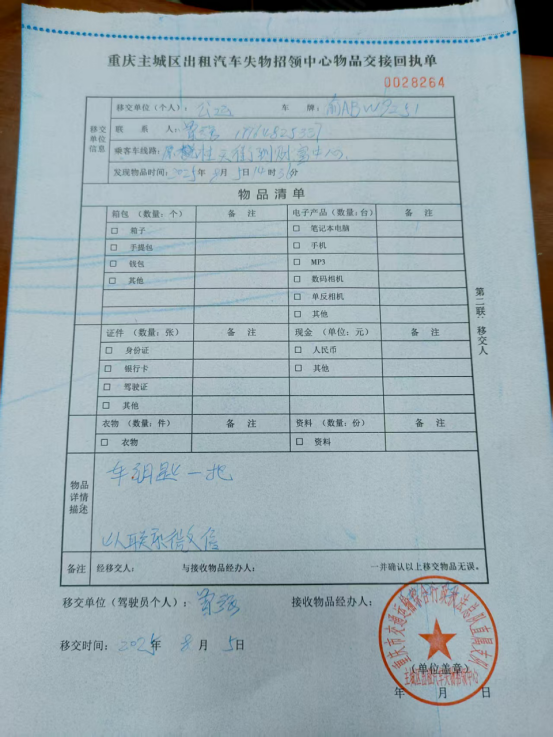 重庆主城区出租汽车失物招领中心物品交接回执单
0028264
移交单位信息
移交单位（个人）： 车 牌：渝ABW9251
联 系 人：曾强
乘客车线路：
发现物品时间：2025年8月5日14时31分
物品清单
箱包（数量：个） 备 注 电子产品（数量：台） 备 注
□ 箱子 □ 笔记本电脑
□ 手提包 □ 手机
□ 钱包 □ MP3
□ 其他 □ 数码相机
□ 单反相机
□ 其他
证件（数量：张） 备 注 现金（单位：元） 备 注
□ 身份证 □ 人民币
□ 银行卡 □ 其他
□ 驾驶证
□ 其他
衣物（数量：件） 备 注 资料（数量：份） 备 注
□ 衣物 □ 资料
物品详情描述
车钥匙一把
以联系微信
备注 经移交人： 与接收物品经办人： 一并确认以上移交物品无误。
第二联：移交人
移交单位（驾驶员个人）：曾强 接收物品经办人：
移交时间：2025年8月5日
（单位盖章）
年 月 日
主城区出租汽车失物招领中心